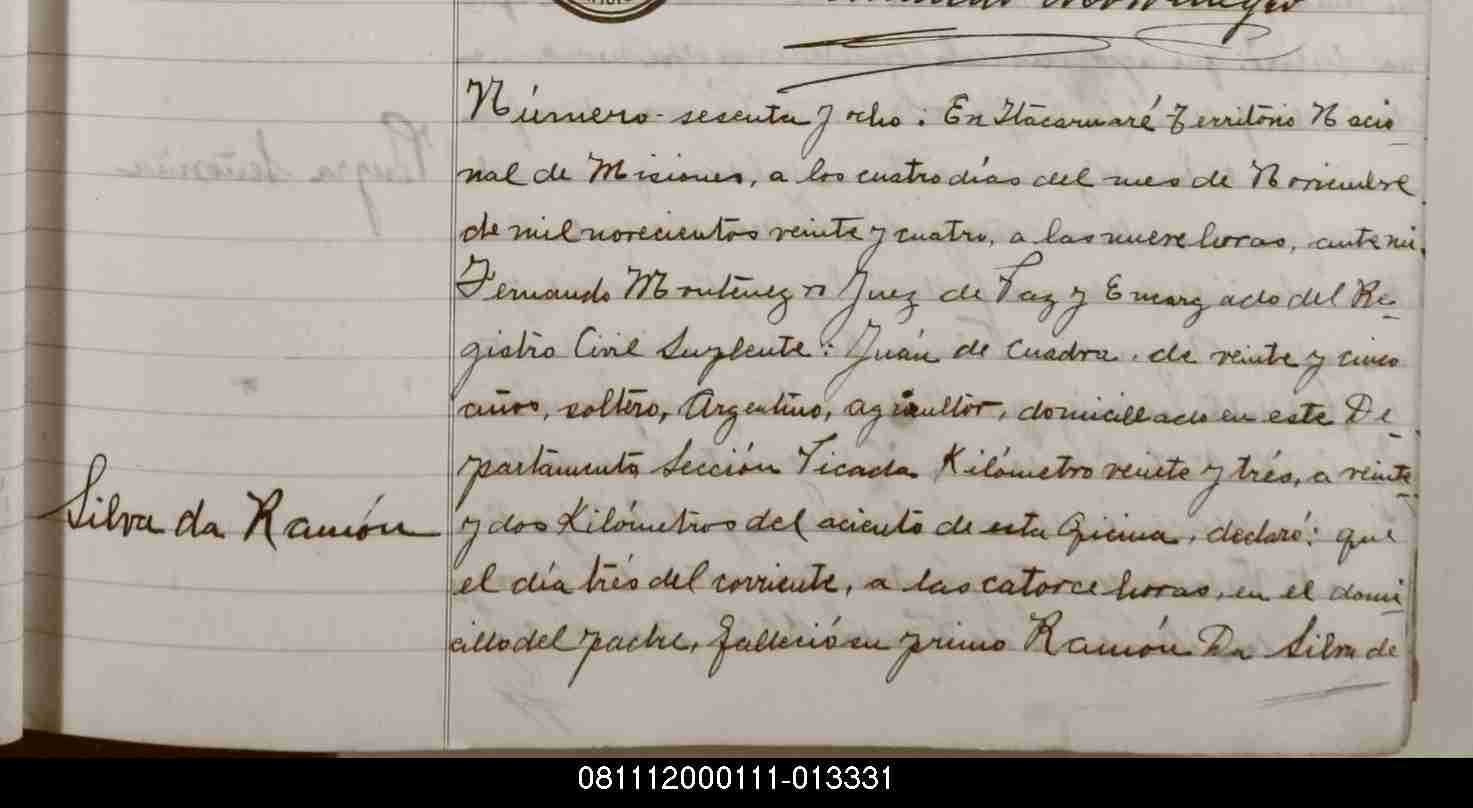 Número sesenta y ocho: En Itacaruaré Território Nacio-
nal de Misiones, a los cuatro días del mes de Noviembre
de mil novecientos veinte y cuatro, a las nueve horas, ante mi,
Fernando Montenegro Juez de Paz y Encargado del Re-
gistro Civil Suplente: Juán de Cuadra, de veinte y cinco
años, soltero, Argentino, agricultor, domicillado en este De-
partamento Sección Picada Kilómetro veinte y trés, a veinte
Silva da Ramón
y dos Kilómetros del aciento de esta Oficina, declaró: que
el día trés del corriente, a las catorce horas, en el domi-
cillo del padre, falleció su primo Ramón Da Silva de
081112000111-013331